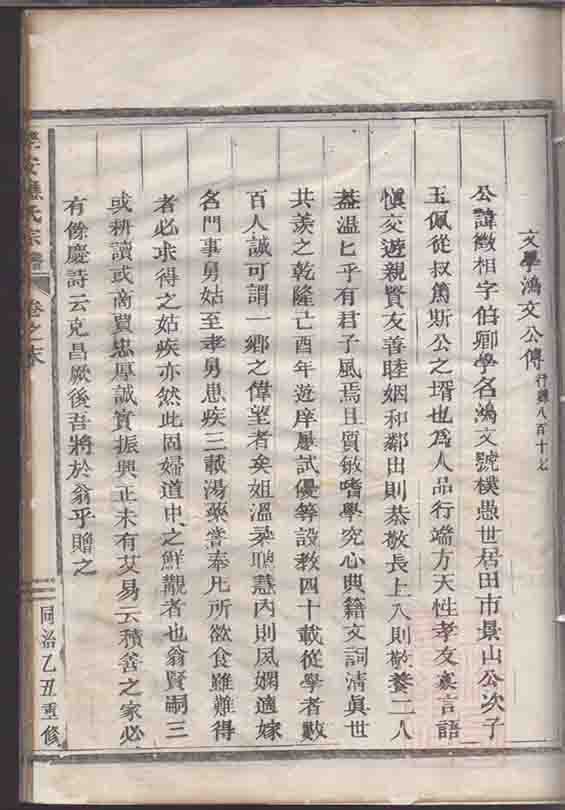 文學鴻文公傳 行轅八百十七
公諱徵相字伯卿學名鴻文號樸愚世居田市景山公次子
玉佩從叔篤斯公之壻也爲人品行端方天性孝友寡言語
愼交遊親賢友善睦姻和鄰出則恭敬長上入則敬養二人
藹溫乜乎有君子風焉且質敏嗜學究心典籍文詞淸眞世
共羨之乾隆己酉年遊庠屢試優等設教四十載從學者數
百人誠可謂一鄉之偉望者矣姐溫柔聰慧內則夙嫻適嫁
名門事舅姑至孝舅患疾三載湯藥嘗奉凡所欲食雖難得
者必求得之姑疾亦然此固婦道中之鮮觀者也翁賢嗣三
或耕讀或商賈忠厚誠實振興正未有艾易云積善之家必
有餘慶詩云克昌厥後吾將於翁乎贈之
安 氏宗譜
卷之末
同治乙丑重修